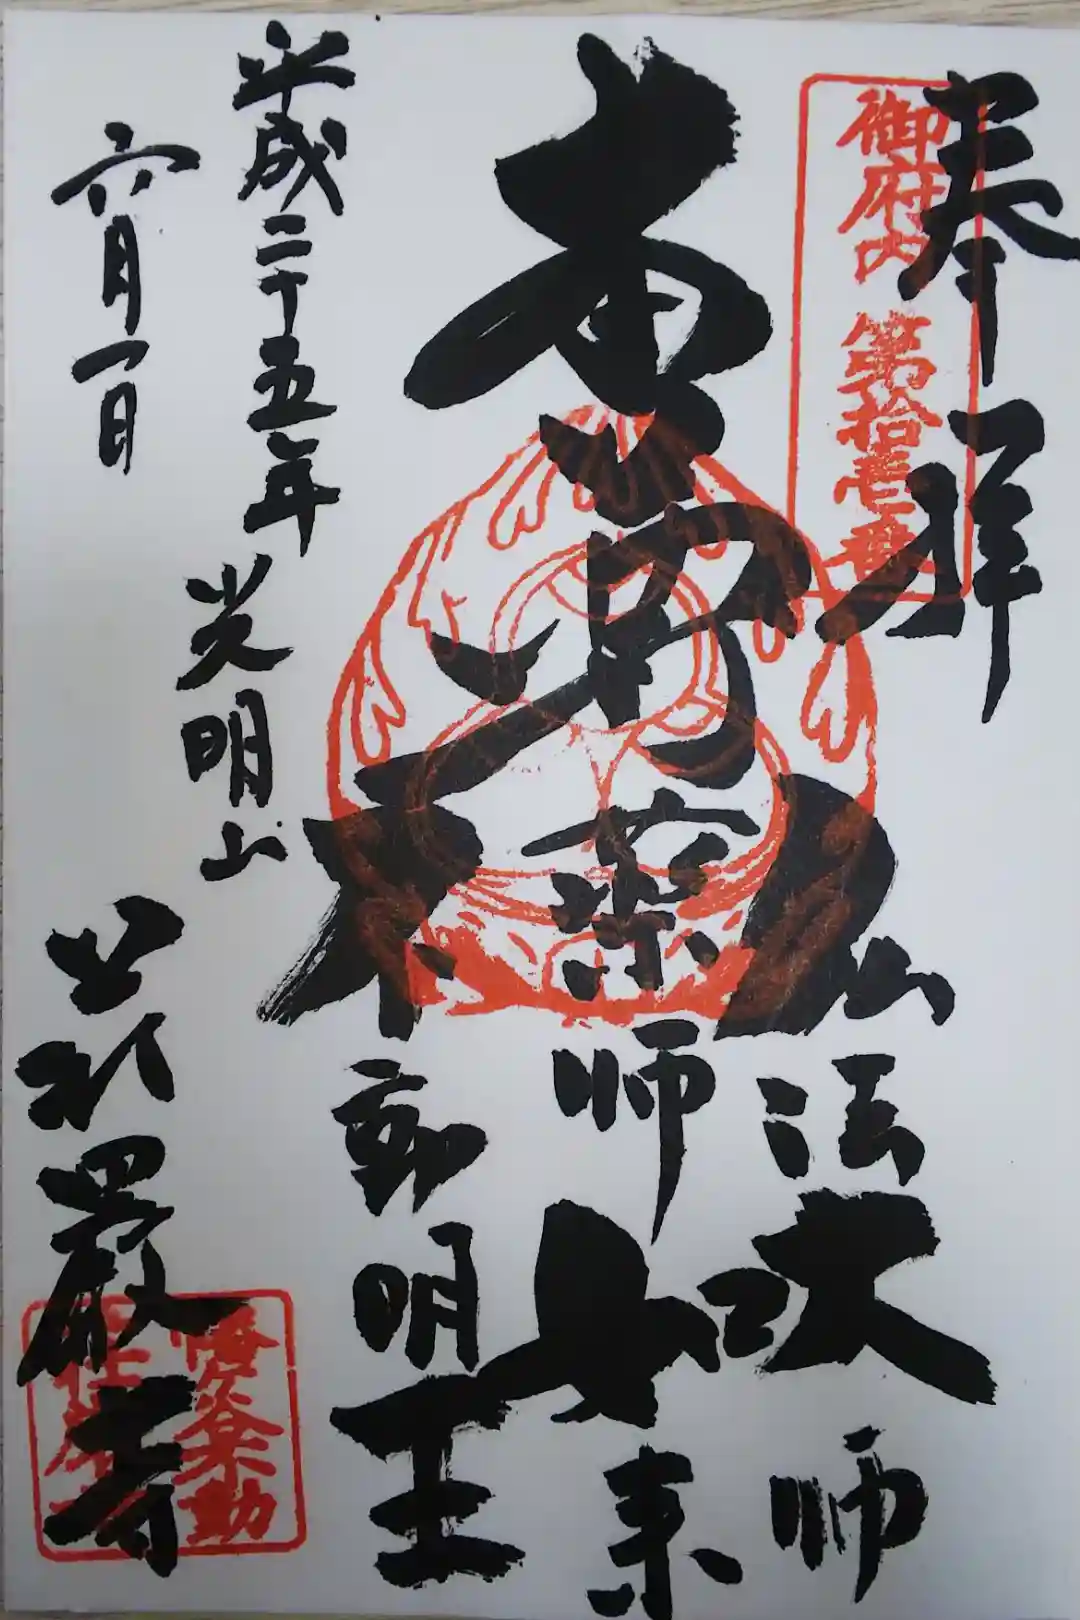 奉拝
御府内 第拾壱番
弘法大師
本尊薬師如来
不動明王
平成二十五年
六月一日
光明山
荘厳寺